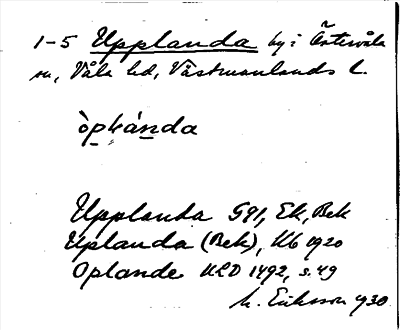 1-5 Upplanda by i Östervåla
sn, Våla hd, Västmanlands l.
Upplanda G91, Ek, Bek
Uplanda (Bek), Kb 1920
Oplande 1492, s. 49
M. Eriksson 1930